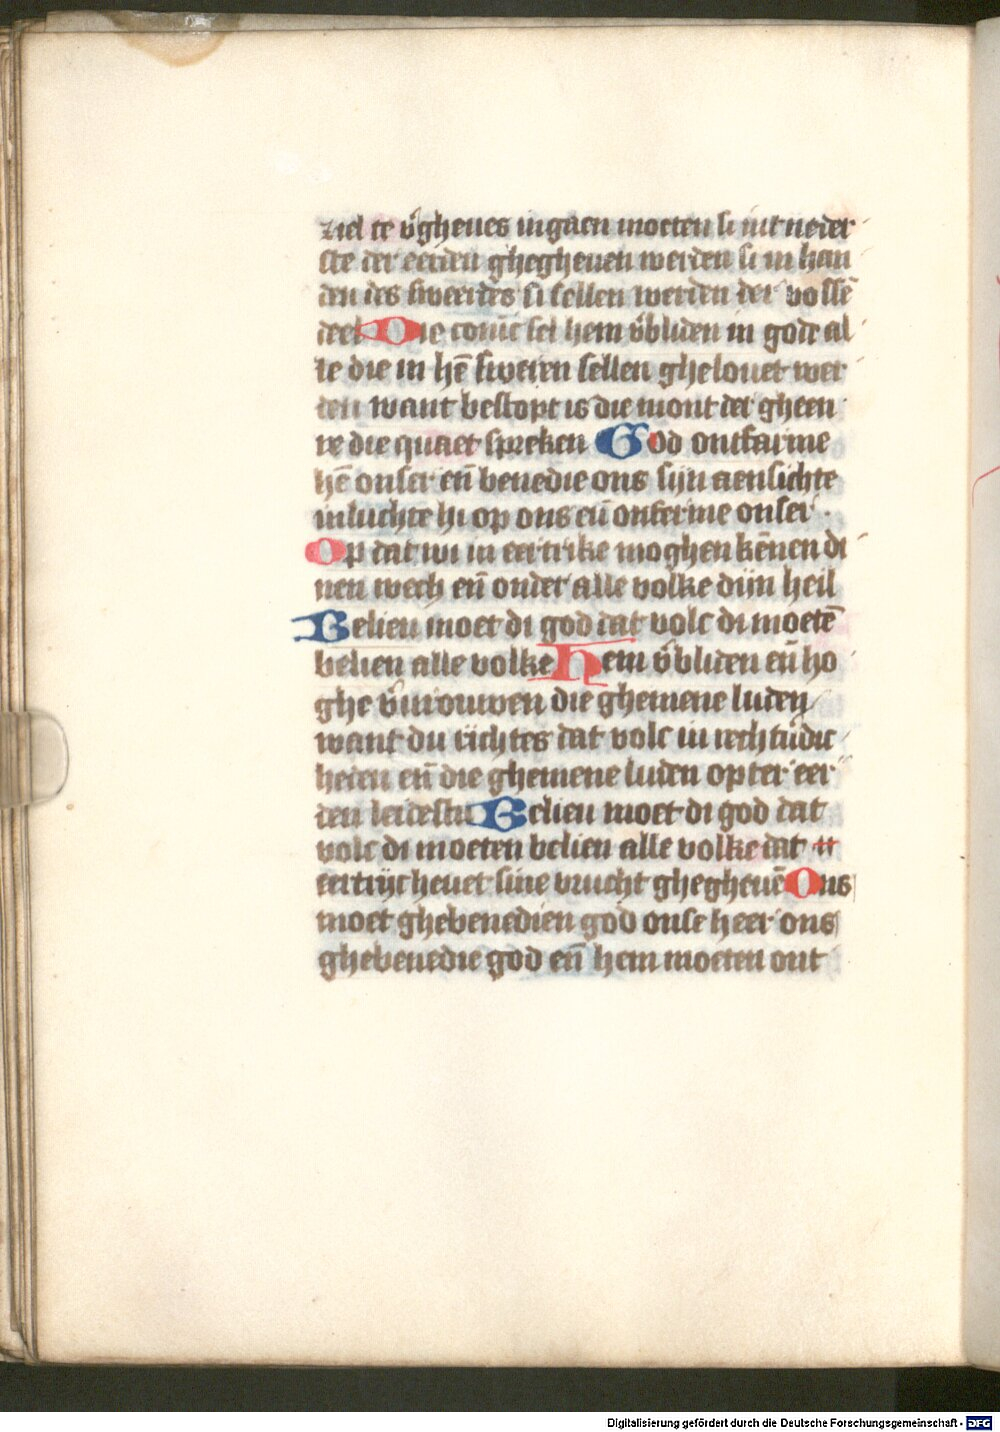 ziel te v̾gheues ingaen moeten si int neder
ste der eerden ghegheuen werden si in han
den des sweerdes si sellen werden der vossē
deel Die conīc sel hem v̾bliden in gode al
le die in hē sweren sellen ghelouet wer
den want bestopt is die mont der gheen
re die quaet spreken God ontfarme
hē onser eñ benedie ons sijn aensichte
inluchte hi op ons eñ onferme onser
Op dat wi in eertrike moghen kēnen di
nen wech eñ onder alle volke dijn heil
Belien moet di god dat volc di moetē
belien alle volke Hem v̾bliden eñ ho
ghe v̾urouwen die ghemene luden
want du richtes dat volc in rechtūdic
heien eñ die ghemene luden opter eer
den leidestu Belien moet di god dat
volc di moeten belien alle volke dat
eertrijc heuet sine vrucht ghegheuē Ons
moet ghebenedien god onse heer ons
ghebenedie god eñ hem moeten ont
Digitalisierung gefördert durch die Deutsche Forschungsgemeinschaft - DFG